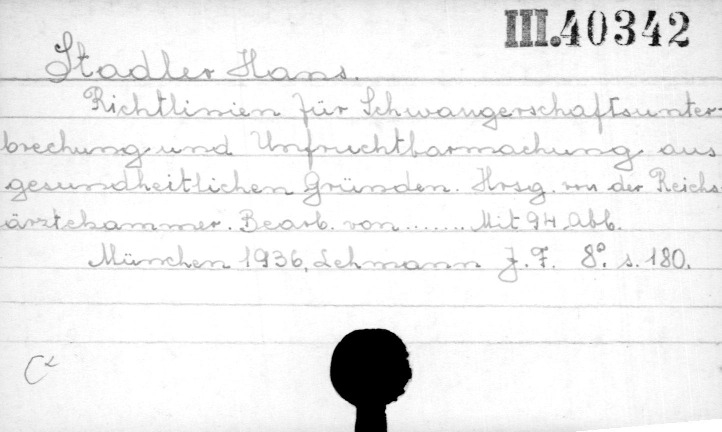 III.40342
Stadler Hans.
Richtlinien für Schwangerschaftsunter-
brechung und Unfruchtbarmachung aus
gesundheitlichen Gründen. Hrsg. von der Reichs
ärztekammer. Bearb. von........ Mit 94 Abb.
München 1936, Lehmann J. F. 8°. s. 180.